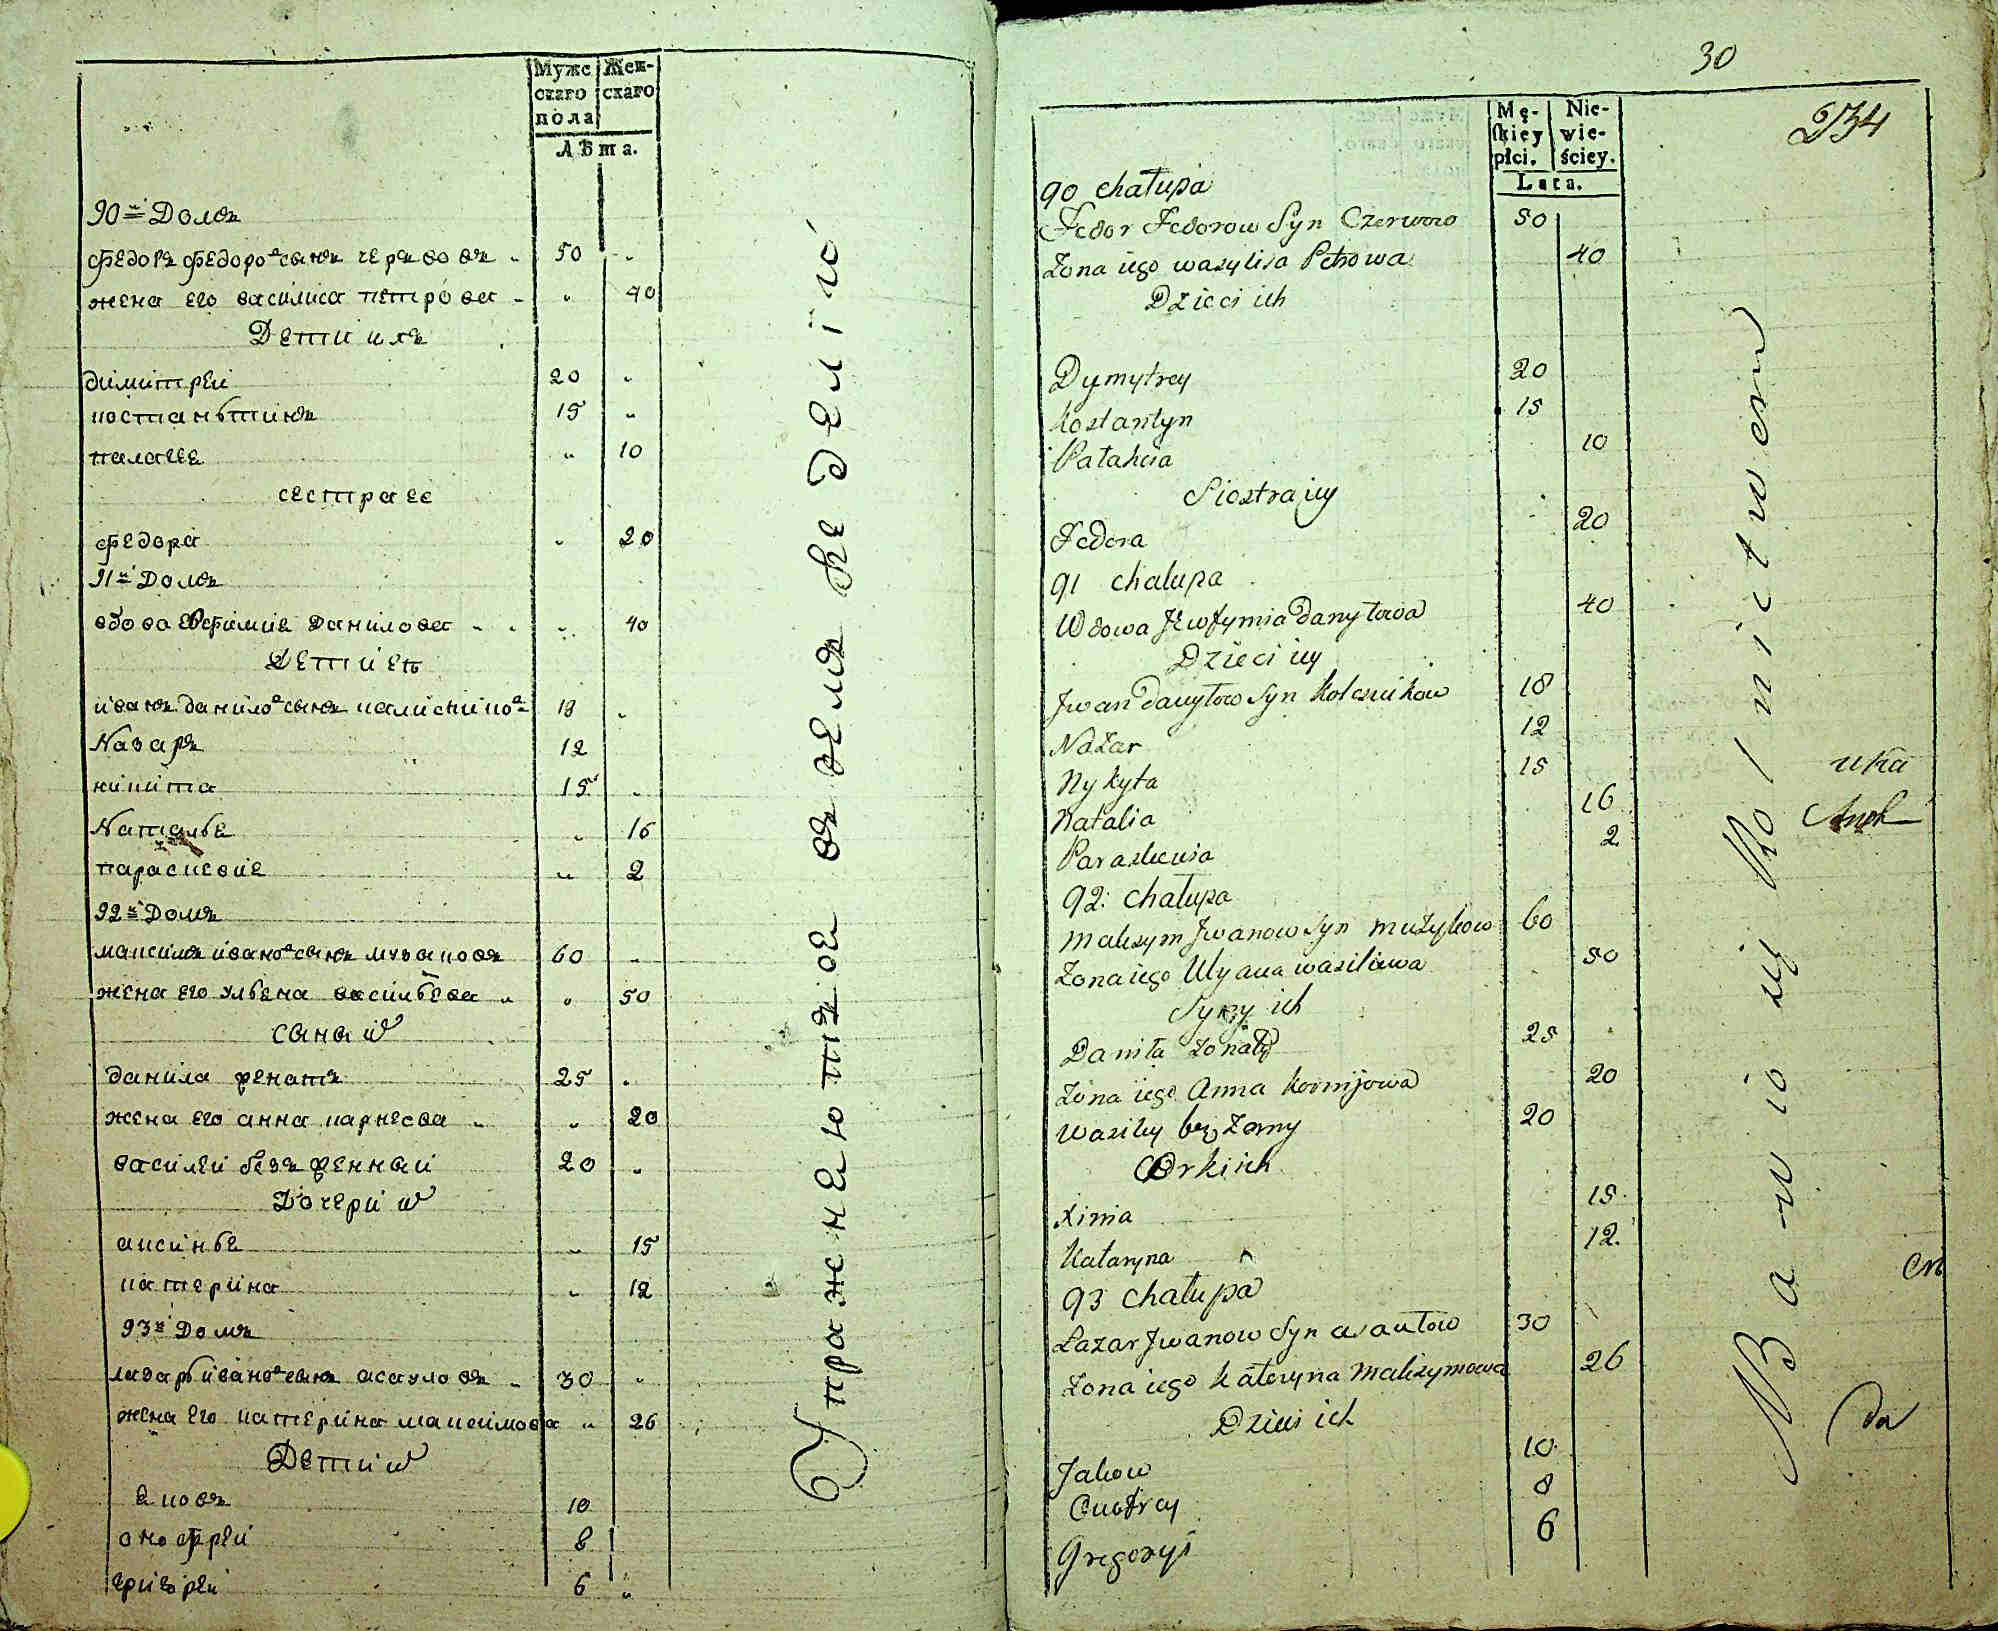 Муже
скаго
пола
Жен-
скаго
Лѣта.
90й Домъ
Федоръ Федоровъ сынъ червовъ 50 "
жена его василиса петрова " 40
Дети ихъ
димитрей 20 "
костаньтинъ 15 "
палагея " 10
сестра ее
федора " 20
91й Домъ
вдова евфимия данилова " 40
Дети ея
иванъ даниловъ сынъ 18 "
Назаръ 12
никита 15 "
Наталья " 16
параскевия " 2
92й Домъ
максимъ ивановъ сынъ 60 "
жена его ульяна васильева " 50
сыны их
данила женатъ 25 "
жена его анна карнеева " 20
василей безъ женный 20 "
Дочери их
аксинья " 15
катерина " 12
93й Домъ
лазарь ивановъ сынъ асауловъ 30 "
жена его катерина максимова " 26
Дети их
яковъ 10
онофрей 8
григорей 6 "
Упражнеютъся въ земле Неделію
30
234
Mę-
skiey
płci.
Nie-
wie-
ściey.
Lata.
90 chałupa
Fedor Fedorow Syn Czerwow 50
Żona iego wasylisa Petrowa 40
Dzieci ich
Dymytrey 20
Kostantyn 15
Pałahia 10
Siostra iey
Fedora 20
91 chałupa
Wdowa Jewfymia Danyłowa 40
Dzieci iey
Jwan Danyłow Syn Kolesnikow 18
Nazar 12
Nykyta 15
Natalia 16
Paraskewia 2
92. chałupa
Maksym Jwanow Syn Mużykow 60
Żona iego Ulyana wasilewa 50
Syny ich
Daniła żonaty 25
Żona iego Anna Kornijowa 20
Wasiley bez Żonny 20
Corki ich
Xinia 15
Kataryna 12.
93 chałupa
Łazar Jwanow Syn asaułow 30
Żona iego Kateryna Maksymowa 26
Dzieci ich
Jakow 10
Onofrey 8
Gregoryi 6
Bawio się Rolnictwem